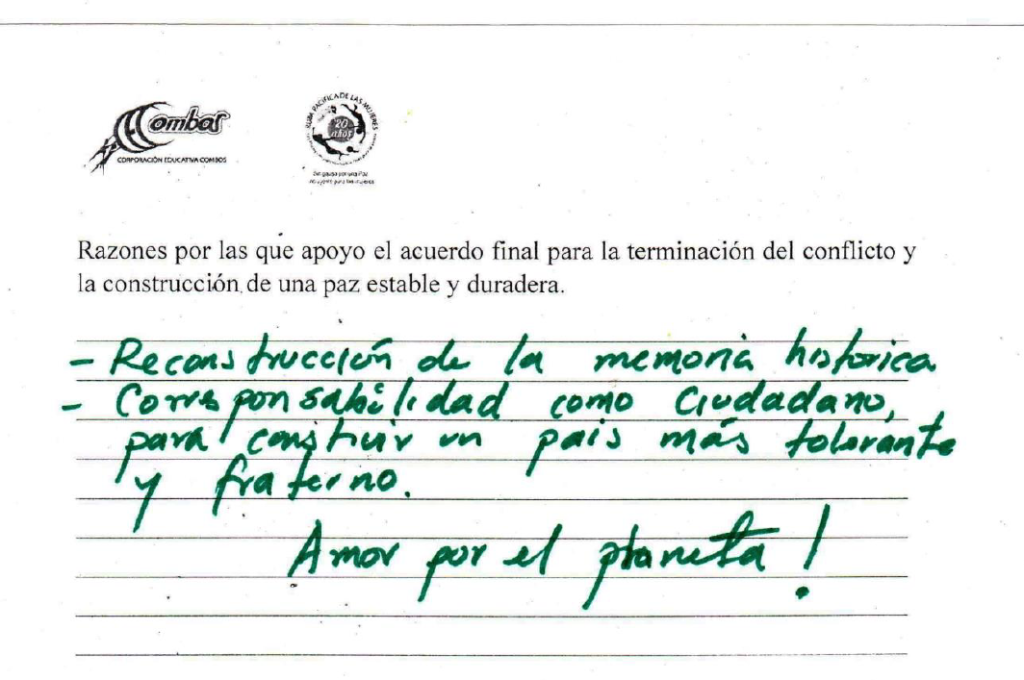 Combos
CORPORACIÓN EDUCATIVA COMBOS
RUTA PACIFICA DE LAS MUJERES
20
años
Razones por las que apoyo el acuerdo final para la terminación del conflicto y
la construcción de una paz estable y duradera.
- Reconstrucción de la memoria histórica
- Corresponsabilidad como ciudadano,
para construir un país más tolerante
y fraterno.
Amor por el planeta!